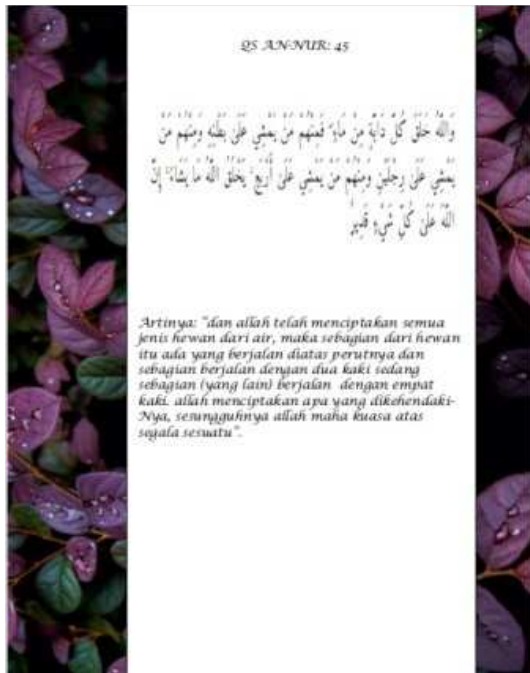 QS AN-NUR: 45
وَاللَّهُ خَلَقَ كُلَّ دَابَّةٍ مِنْ مَاءٍ ۖ فَمِنْهُمْ مَنْ يَمْشِي عَلَىٰ بَطْنِهِ وَمِنْهُمْ مَنْ
يَمْشِي عَلَىٰ رِجْلَيْنِ وَمِنْهُمْ مَنْ يَمْشِي عَلَىٰ أَرْبَعٍ ۚ يَخْلُقُ اللَّهُ مَا يَشَاءُ ۚ إِنَّ
اللَّهَ عَلَىٰ كُلِّ شَيْءٍ قَدِيرٌ
Artinya: "dan allah telah menciptakan semua
jenis hewan dari air, maka sebagian dari hewan
itu ada yang berjalan diatas perutnya dan
sebagian berjalan dengan dua kaki sedang
sebagian (yang lain) berjalan dengan empat
kaki. allah menciptakan apa yang dikehendaki-
Nya, sesungguhnya allah maha kuasa atas
segala sesuatu".